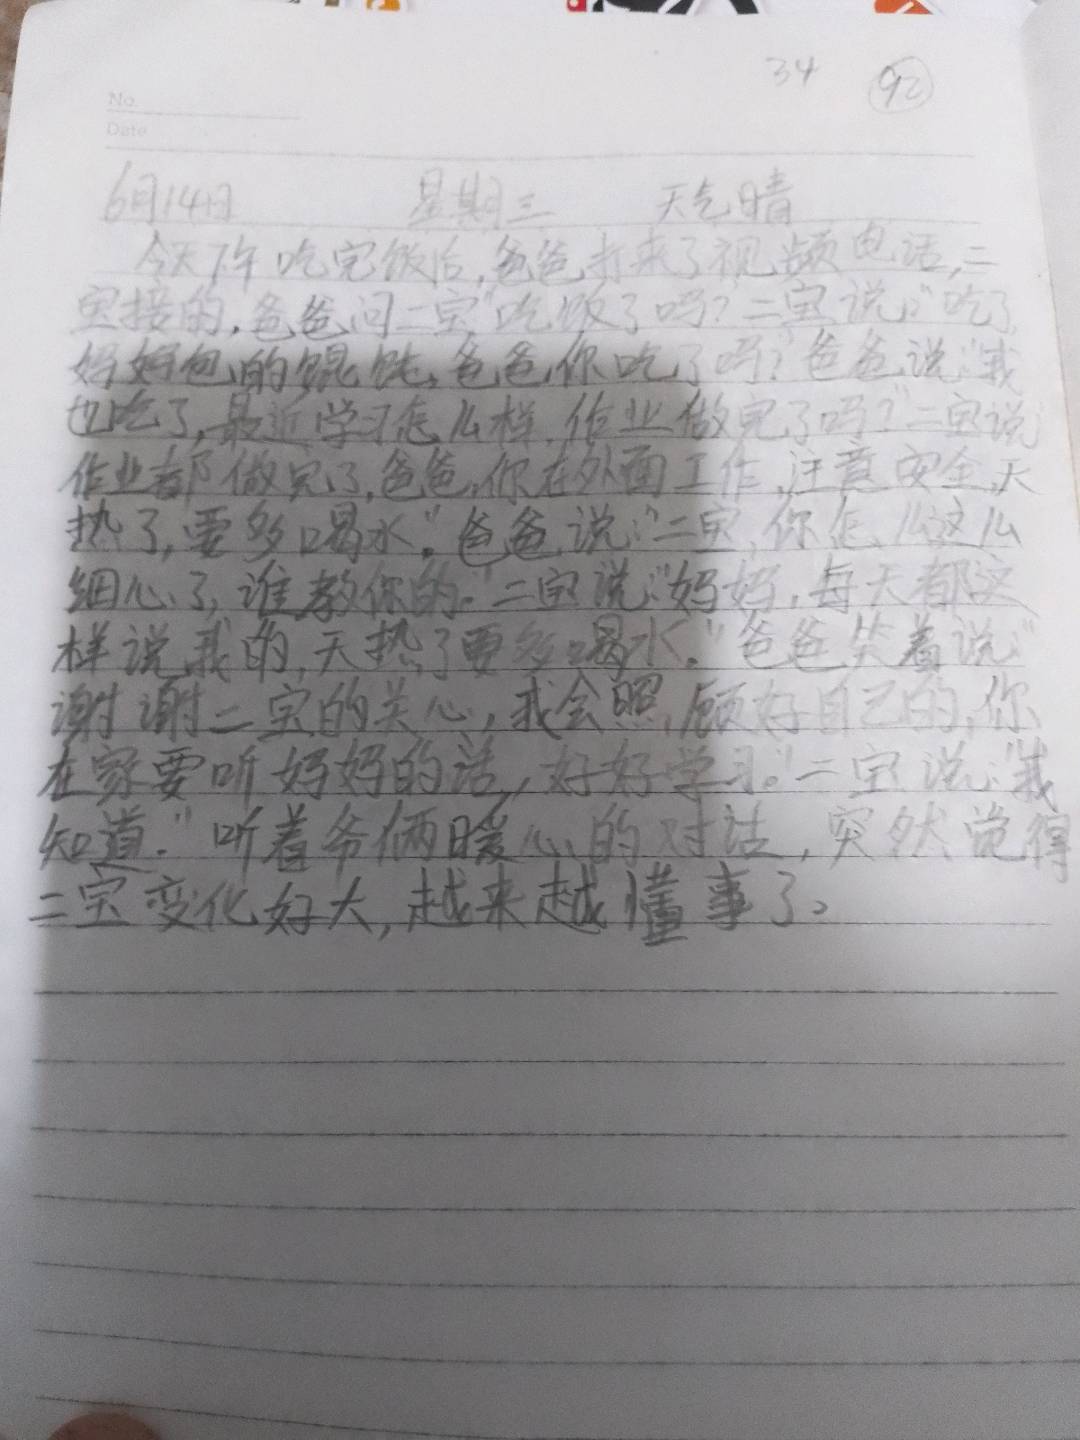 34 92
No.
Date
6月14日 星期三 天气晴
今天下午吃完饭后,爸爸打来了视频电话,二
宝接的,爸爸问二宝"吃饭了吗?"二宝说:"吃了
妈妈包的馄饨,爸爸,你吃了吗?"爸爸说:"我
也吃了,最近学习怎么样,作业做完了吗?"二宝说
作业都做完了,爸爸,你在外面工作,注意安全,天
热了,要多喝水。"爸爸说:"二宝,你怎么这么
细心了,谁教你的。"二宝说:"妈妈,每天都这
样说我的,天热了要多喝水。"爸爸笑着说:"
谢谢二宝的关心,我会照顾好自己的,你
在家要听妈妈的话,好好学习。"二宝说:"我
知道."听着爷俩暖心的对话,突然觉得
二宝变化好大,越来越懂事了。